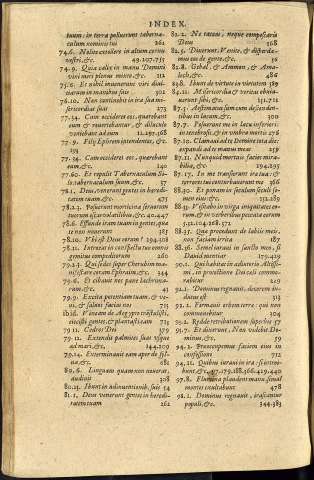 INDEX.
tuum: in terra polluerunt taberna-
culum nominis tui 261
74.6. Nolite extollere in altum cornu
vestrū, &c. 49.107.755
74.9. Quia calix in manu Domini
vini meri plenus mixto, &c. 212
75.6. Et nihil inuenerunt viri divi-
tiarum in manibus suis 302
76.10. Nun continebit in ira sua mi-
sericordias suas
77.34. Cum occideret eos, quærebant
eum & reuertebantur, & diluculo
veniebant ad eum 11.297.368
77.9. Filij Ephrem intendentes, &c.
293
77.34. Cum occideret eos, quærebant
eum, &c. 140
77.60. Et repulit Tabernaculum Si-
lo, tabernaculum suum, &c. 57
78.1. Deus, venerunt gentes in heredi-
tatem tuam, &c. 475
78.2.3. Posuerunt morticina seruorum
tuorum escas volatilibus, &c. 40.447
78.6. Effunde iram tuam in gentes, quæ
te non nouerunt 385
78.10. Vbi est Deus eorum? 294.308
78.11. Introeat in conspectu tuo
gemitus compeditorum 260
79.2.3. Qui sedes super Cherubim ma-
nifestare coram Ephraim, &c. 345
79.6. Et cibauit nos pane lachryma-
rum, &c.
79.9. Excita potentiam tuam, & ve-
ni, & saluos facias nos 715
ibid. Vineam de Aegypto trāstulisti,
eiecisti gentes, & plantasti eam 715
79.11. Cedros Dei 379
79.12. Extendit palmites suos vsque
ad mare, &c. 144.209
79.14. Exterminauit eam aper de syl-
ua, &c. 681
80.6. Linguam quam non nouerat,
audiuit 308
80.13. Ibunt in adinuentionib. suis 54
81.1. Deus venerunt gentes in heredi-
tatem tuam 262
82.2. Ne taceas, neque compescaris
Deus 568
82.5. Dixerunt, Venite, & disperda-
mus eos de gente, &c. 56
82.8. Gebal, & Ammon, & Ama-
lech, &c. 486
83.8. Ibunt de virtute in virtutem 389
84.11. Misericordia & veritas obuia-
uerunt sibi, &c. 151.711
87.5. Aestimatus sum cum descendēti-
bus in lacum, &c. 300
87.7. Posuerunt me in lacu inferiori:
in tenebrosis, & in vmbra mortis 276
87.10. Clamaui ad te Domine tota die:
expandi ad te manus meas 259
87.11. Nunquid mortuis facies mira-
bilia, &c. 294.295
87.17. In me transierunt iræ tuæ: &
terrores tui conturbauerunt me 366
88.30. Et ponam in seculum seculi se-
men eius, &c. 151.289
88.33. Visitabo in virga iniquitates eo-
rum, & in verberibus peccata eorum
5.12.104.268.571
88.35. Quæ procedunt de labiis meis,
non faciam irrita 187
88.36. Semel iuraui in sancto meo, si
Dauid mentiar 179.419
90.1. Qui habitat in adiutorio Altissi-
mi, in protectione Dei cæli commo-
rabitur 229
92.1. Dominus regnauit, decorem in-
dutus est 313
92.2. Firmauit orbem terræ: qui non
commouebitur 304
93.2. Redde retributionem superbis 57
93.7. Et dixerunt, Non videbit Do-
minus, &c. 59
94.2. Præoccupemus faciem eius in
confessione 712
94.11. Quibus iuraui in ira: si introi-
bunt, &c. 97.179.188.366.419.440
97.8. Flumina plaudent manu simul
montes exultabunt 478
98.1. Dominus regnauit, irascantur
populi, &c. 344.383